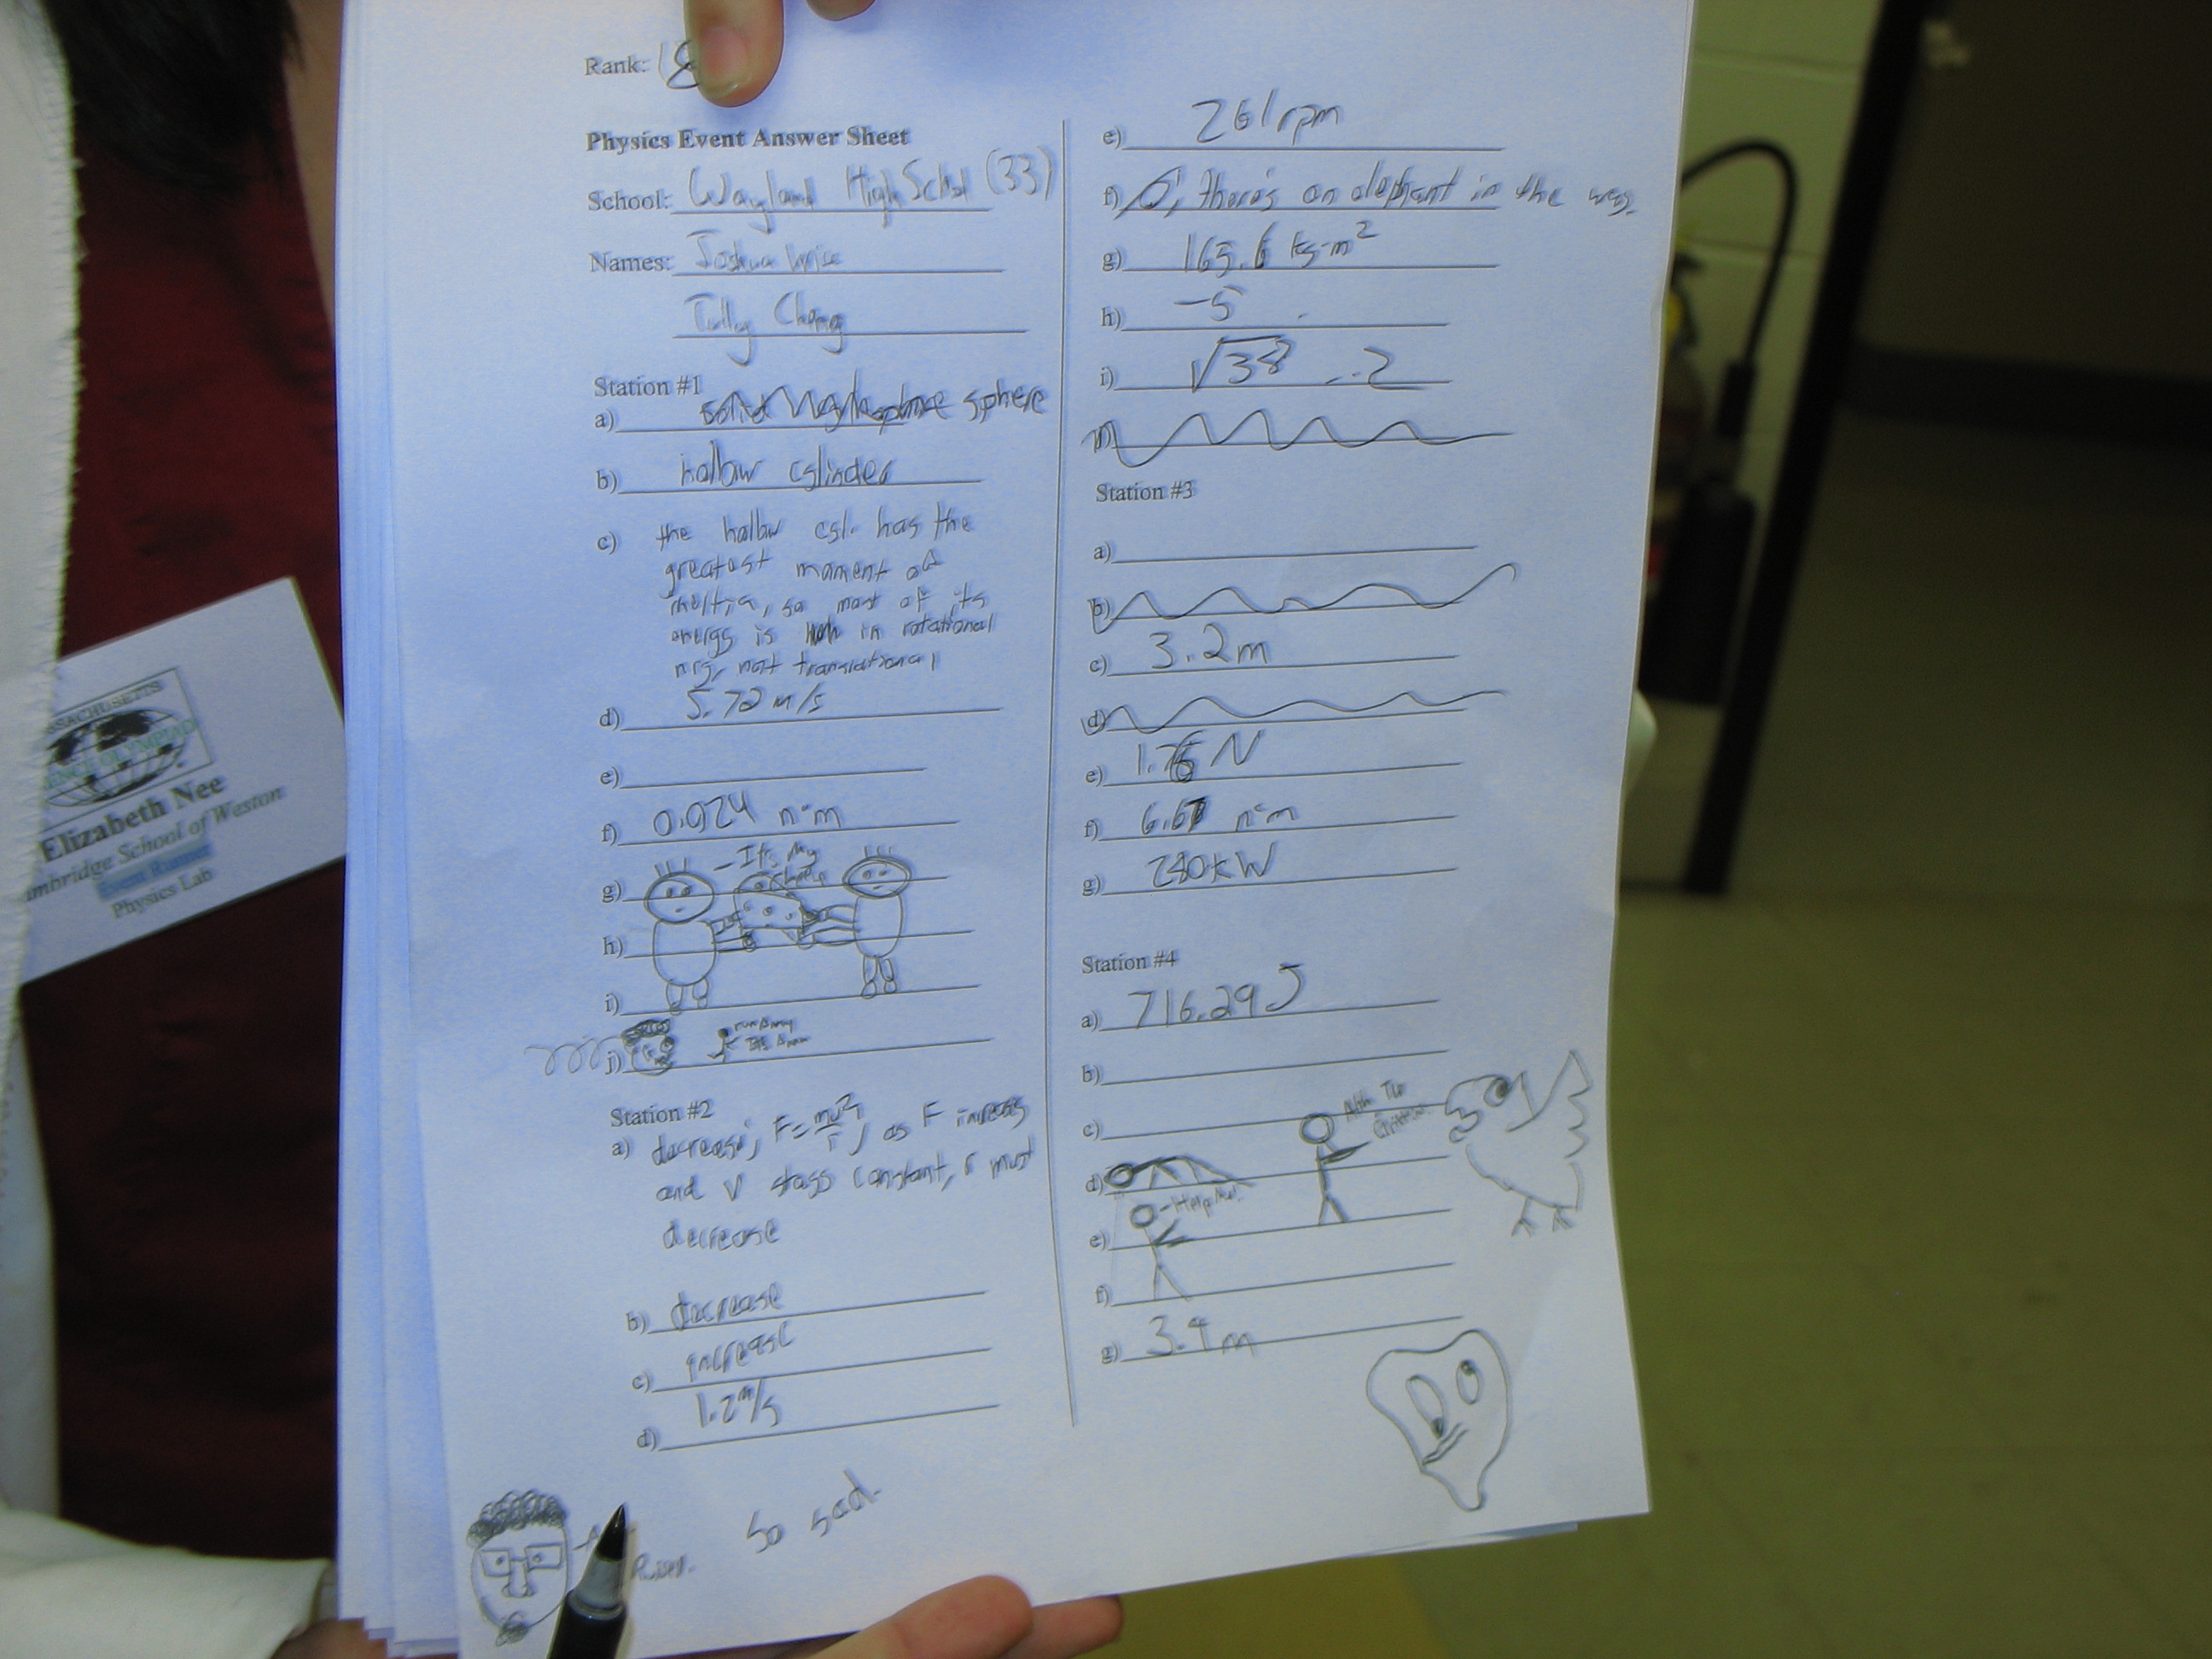 Rank: 18
Physics Event Answer Sheet
School: Wayland High School (33)
Names: Joshua Wise
Station #1
a) sphere
b) hollow cylinder
c) the hollow cyl. has the
greatest moment of
inertia, so most of its
energy is in rotational
nrg, not translational
d) 5.72 m/s
e)
f) 0.024 n·m
g) - It's My
h)
i)
j) run away
Station #2
a) decrease; F = mv²/r, as F increases
and v stays constant, r must
decrease
b) decrease
c) increase
d) 1.2 m/s
So sad.
e) 261 rpm
f) 0, there's an elephant in the way.
g) 165.6 kg·m²
h) -5
i) √38 -2
Station #3
a)
b)
c) 3.2 m
d)
e) 1.76 N
f) n·m
g) 280 kW
Station #4
a) 716.29 J
b)
c)
d)
- Help Me!
e)
f)
g) 3.4 m
MASSACHUSETTS
SCIENCE OLYMPIAD
Elizabeth Nee
Cambridge School of Weston
Event Runner
Physics Lab